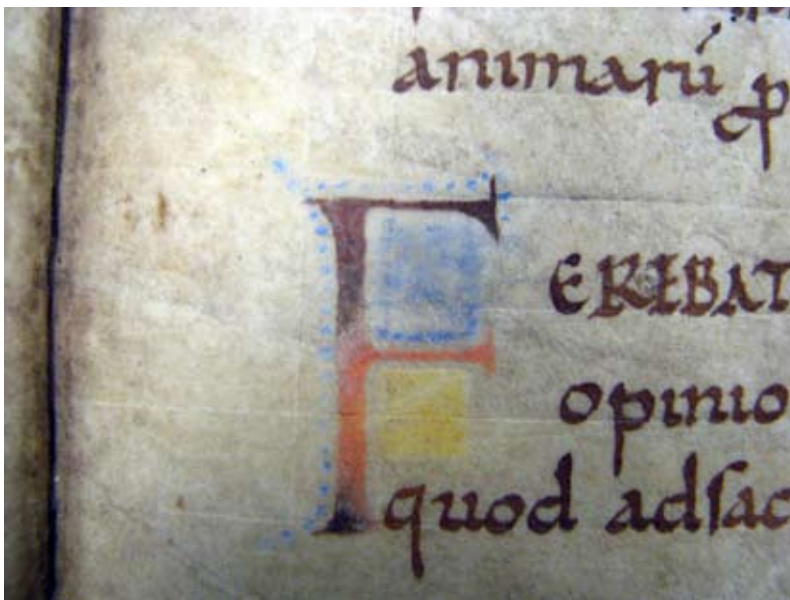 animarū
F
ERIBAT
opinio
quod adſac